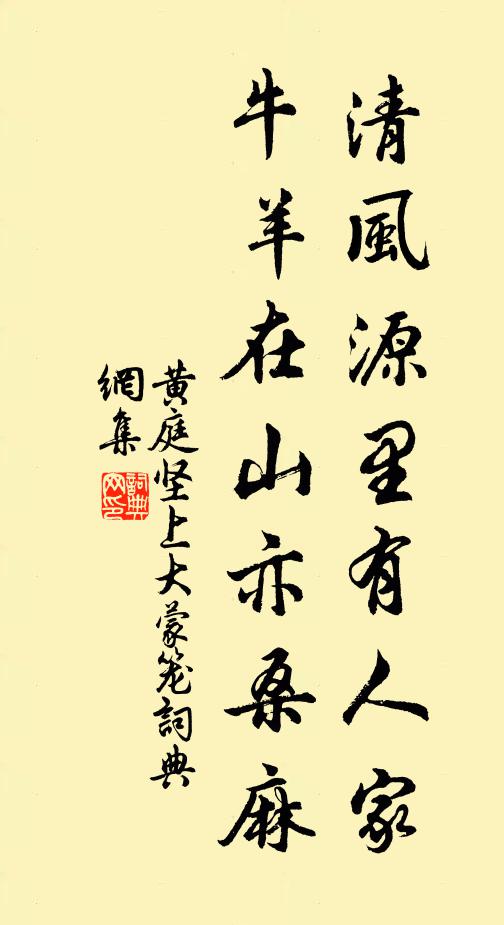 清風源里有人家
牛羊在山亦桑麻
黄庭坚上大蒙笼詞典
網集
詞典
网印